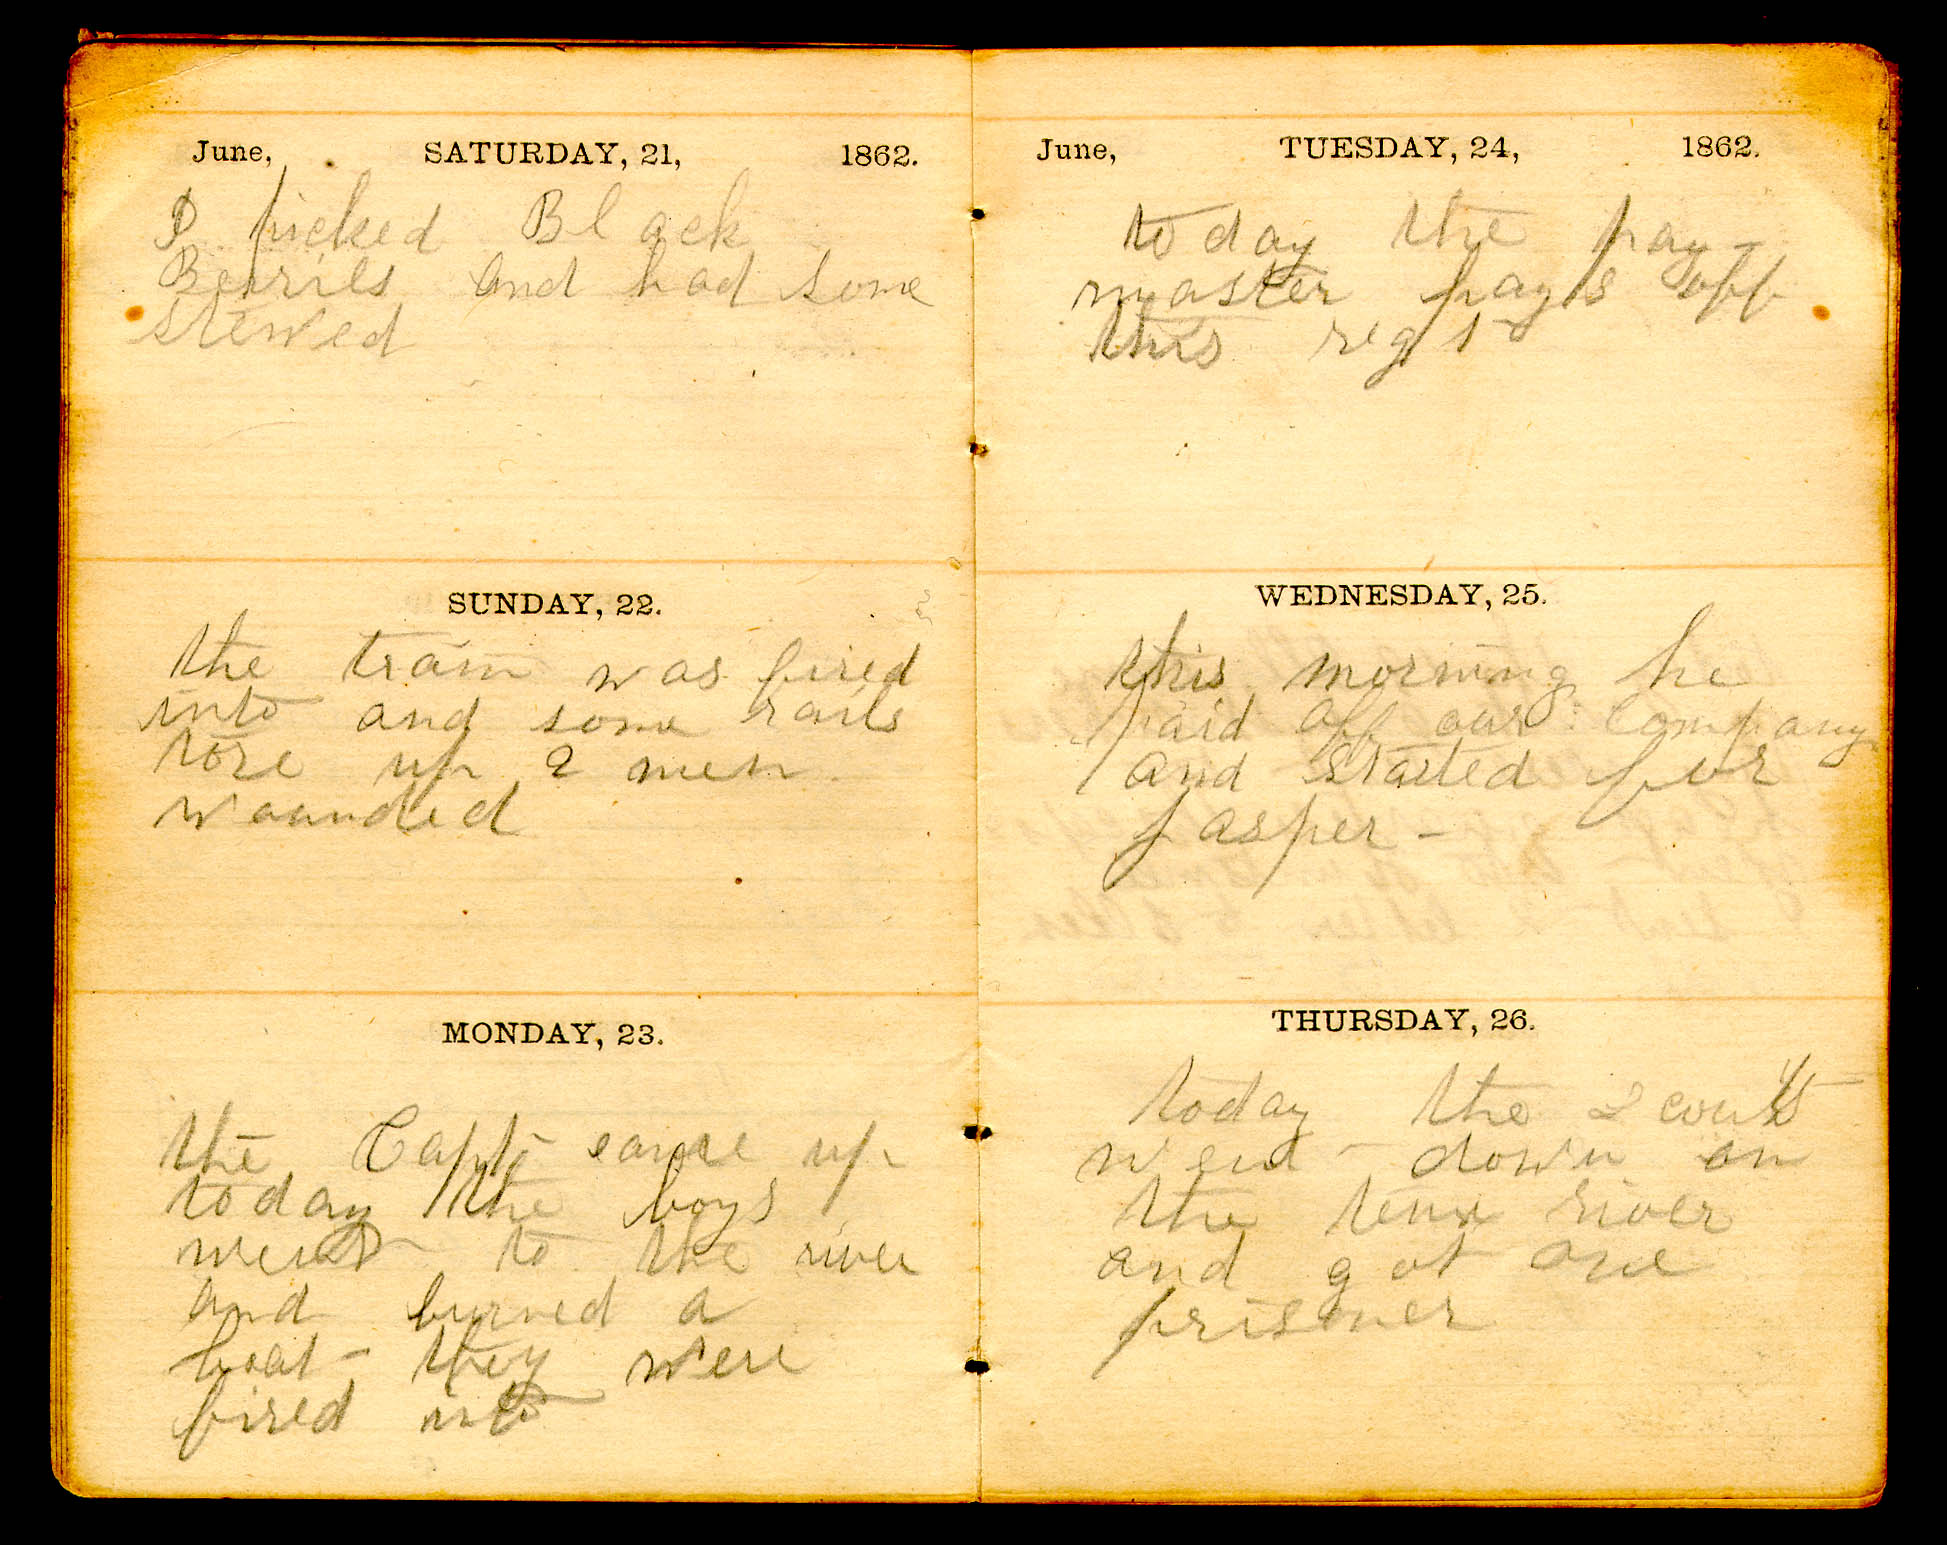 June, SATURDAY, 21, 1862.
I picked Black
Berries and had some
stewed
SUNDAY, 22.
the train was fired
into and some rails
tore up 2 men
wounded
MONDAY, 23.
the Capt came up
today the boys
went to the river
and burned a
boat they were
fired into
June, TUESDAY, 24, 1862.
today the pay-
master pays off
this regt
WEDNESDAY, 25.
this morning he
paid off our Company
and started for
Jasper -
THURSDAY, 26.
today the scouts
went down on
the tenn river
and got one
prisoner